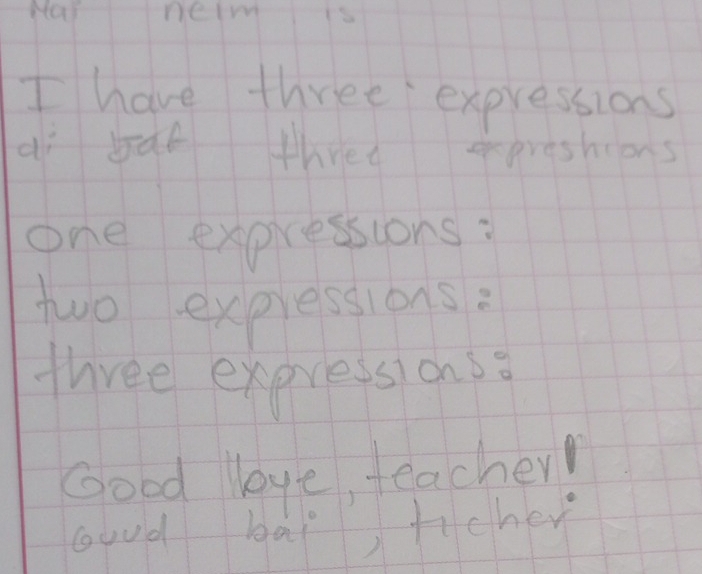 Mai neim is
I have three expressions
ai three expreshions
one expressions:
two expressions:
three expressions:
Good bye, teacher!
Guud bai, ticher